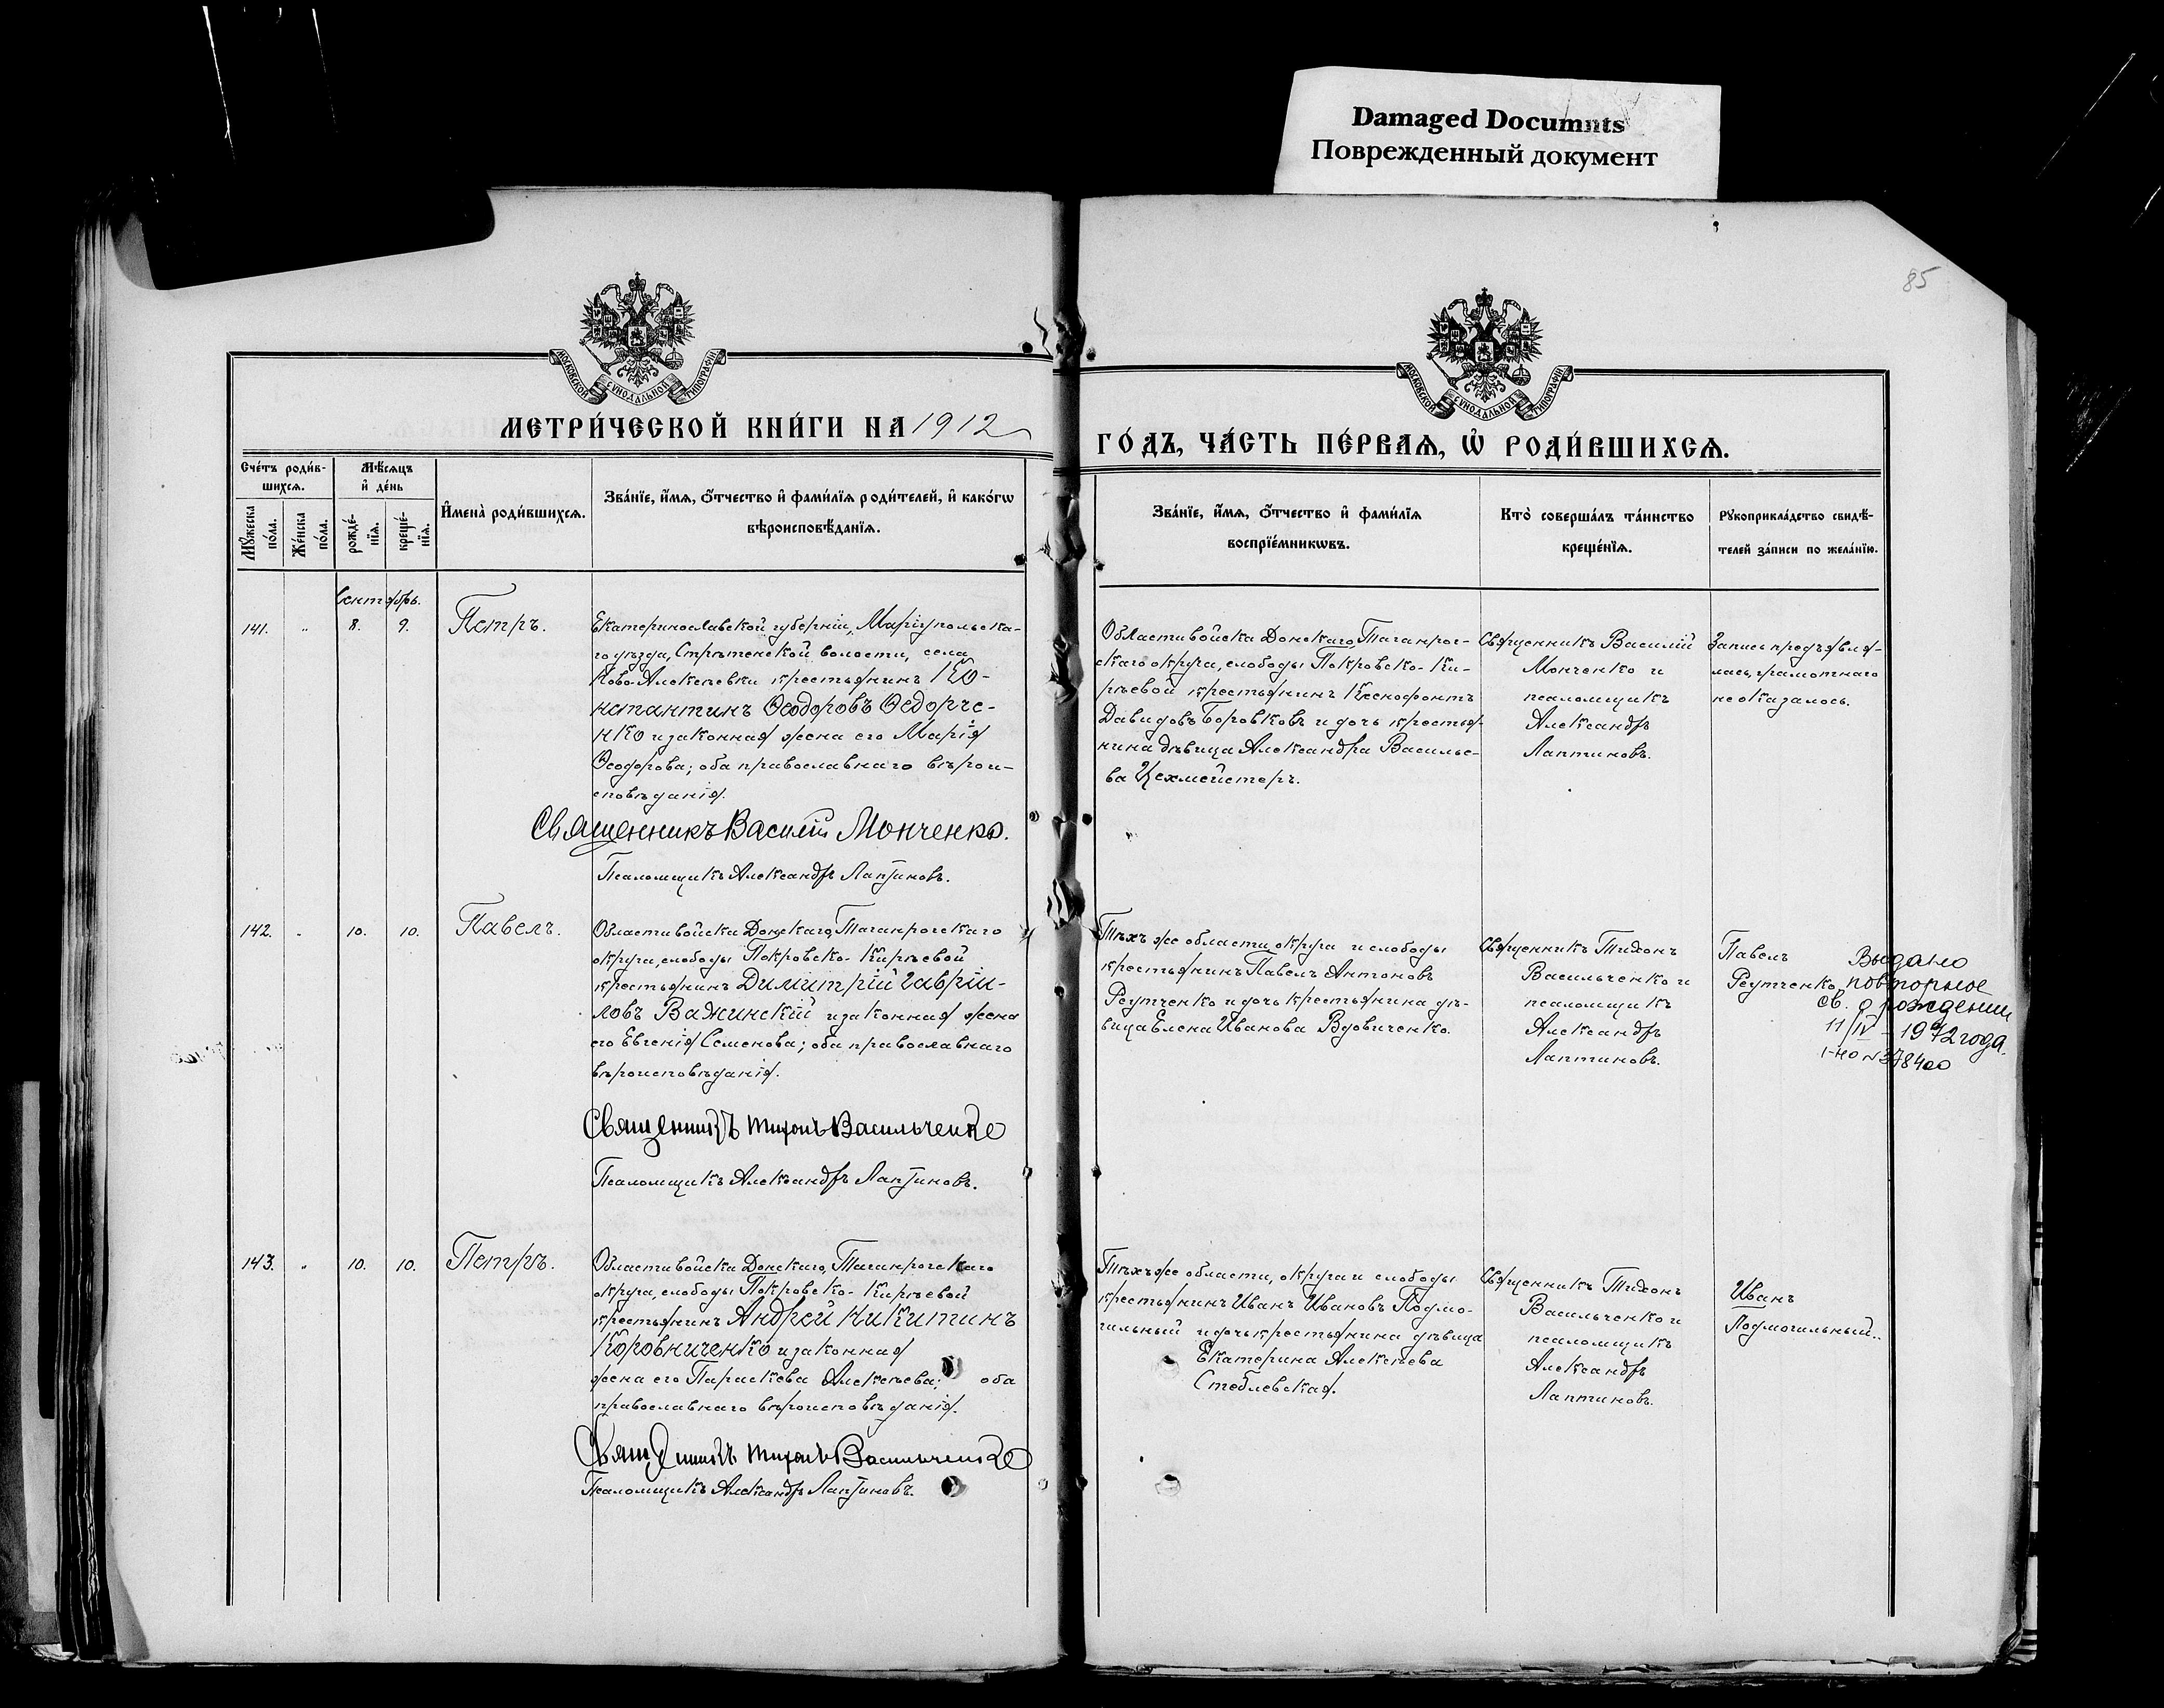 Damaged Documnts
Поврежденный документ
85
МОСКОВСКОЙ СѴНОДАЛЬНОЙ ТИПОГРАФІИ
МОСКОВСКОЙ СѴНОДАЛЬНОЙ ТИПОГРАФІИ
МЕТРИ́ЧЕСКОЙ КНИ́ГИ НА 1912
ГО́ДЪ, ЧА́СТЬ ПЕ́РВАѦ, Ѡ҆ РОДИ́ВШИХСѦ.
Сче́тъ роди́в-
шихсѧ.
Мꙋ́жеска
по́ла.
Же́нска
по́ла.
Мѣ́сѧцъ
и҆ де́нь
рожде́-
нїѧ.
креще́-
нїѧ.
И҆мена̀ роди́вшихсѧ.
Зва́нїе, и҆́мѧ, ѻ҆́тчество и҆ фами́лїѧ роди́телей, и҆ како́гѡ
вѣроисповѣ́данїѧ.
Зва́нїе, и҆́мѧ, ѻ҆́тчество и҆ фами́лїѧ
воспрїе́мникѡвъ.
Кто̀ соверша́лъ та́инство
креще́нїѧ.
Рꙋкоприкла́дство свидѣ́-
телей за́писи по жела́нїю.
Сентябрь.
141. " 8. 9. Петръ.
Екатеринославской губерніи, Маріупольска-
го уѣзда, Стрѣтенской волости, села
Ново-Алексѣевки крестьянинъ Ко-
нстантинъ Ѳеодоровъ Ѳедорче-
нко и законная жена его Марія
Ѳеодорова; оба православнаго вѣрои-
сповѣданія.
Священникъ Василій Монченко.
Псаломщикъ Александръ Лаптиновъ.
Области войска Донскаго, Таганрог-
скаго округа, слободы Покровско-Ки-
рѣевой крестьянинъ Ксенофонтъ
Давидовъ Боровковъ и дочь крестья-
нина дѣвица Александра Василье-
ва Цехмейстеръ.
Священникъ Василій
Монченко и
псаломщикъ
Александръ
Лаптиновъ.
Запись предъявля-
лась, грамотнаго
не оказалось.
142. " 10. 10. Павелъ.
Области войска Донскаго, Таганрогскаго
округа, слободы Покровско-Кирѣевой
крестьянинъ Димитрій Гаврiи-
ловъ Важинскій и законная жена
его Евгенія Семенова; оба православнаго
вѣроисповѣданія.
Священникъ Тихонъ Васильченко
Псаломщикъ Александръ Лаптиновъ.
Тѣхъ же области, округа и слободы
крестьянинъ Павелъ Антоновъ
Реутченко и дочь крестьянина дѣ-
вица Елена Иванова Вдовиченко.
Священникъ Тихонъ
Васильченко и
псаломщикъ
Александръ
Лаптиновъ.
Павелъ
Реутченко
Выдано
повторное
св. о рождении
11/IV-1972 года.
№ 378400
143. " 10. 10. Петръ.
Области войска Донскаго, Таганрогскаго
округа, слободы Покровско-Кирѣевой
крестьянинъ Андрей Никитинъ
Коровниченко и законная
жена его Параскева Алексѣева; оба
православнаго вѣроисповѣданія.
Священникъ Тихонъ Васильченко
Псаломщикъ Александръ Лаптиновъ.
Тѣхъ же области, округа и слободы
крестьянинъ Иванъ Ивановъ Подмо-
гильный и дочь крестьянина дѣвица
Екатерина Алексѣева
Стеблевская.
Священникъ Тихонъ
Васильченко и
псаломщикъ
Александръ
Лаптиновъ.
Иванъ
Подмогильный.